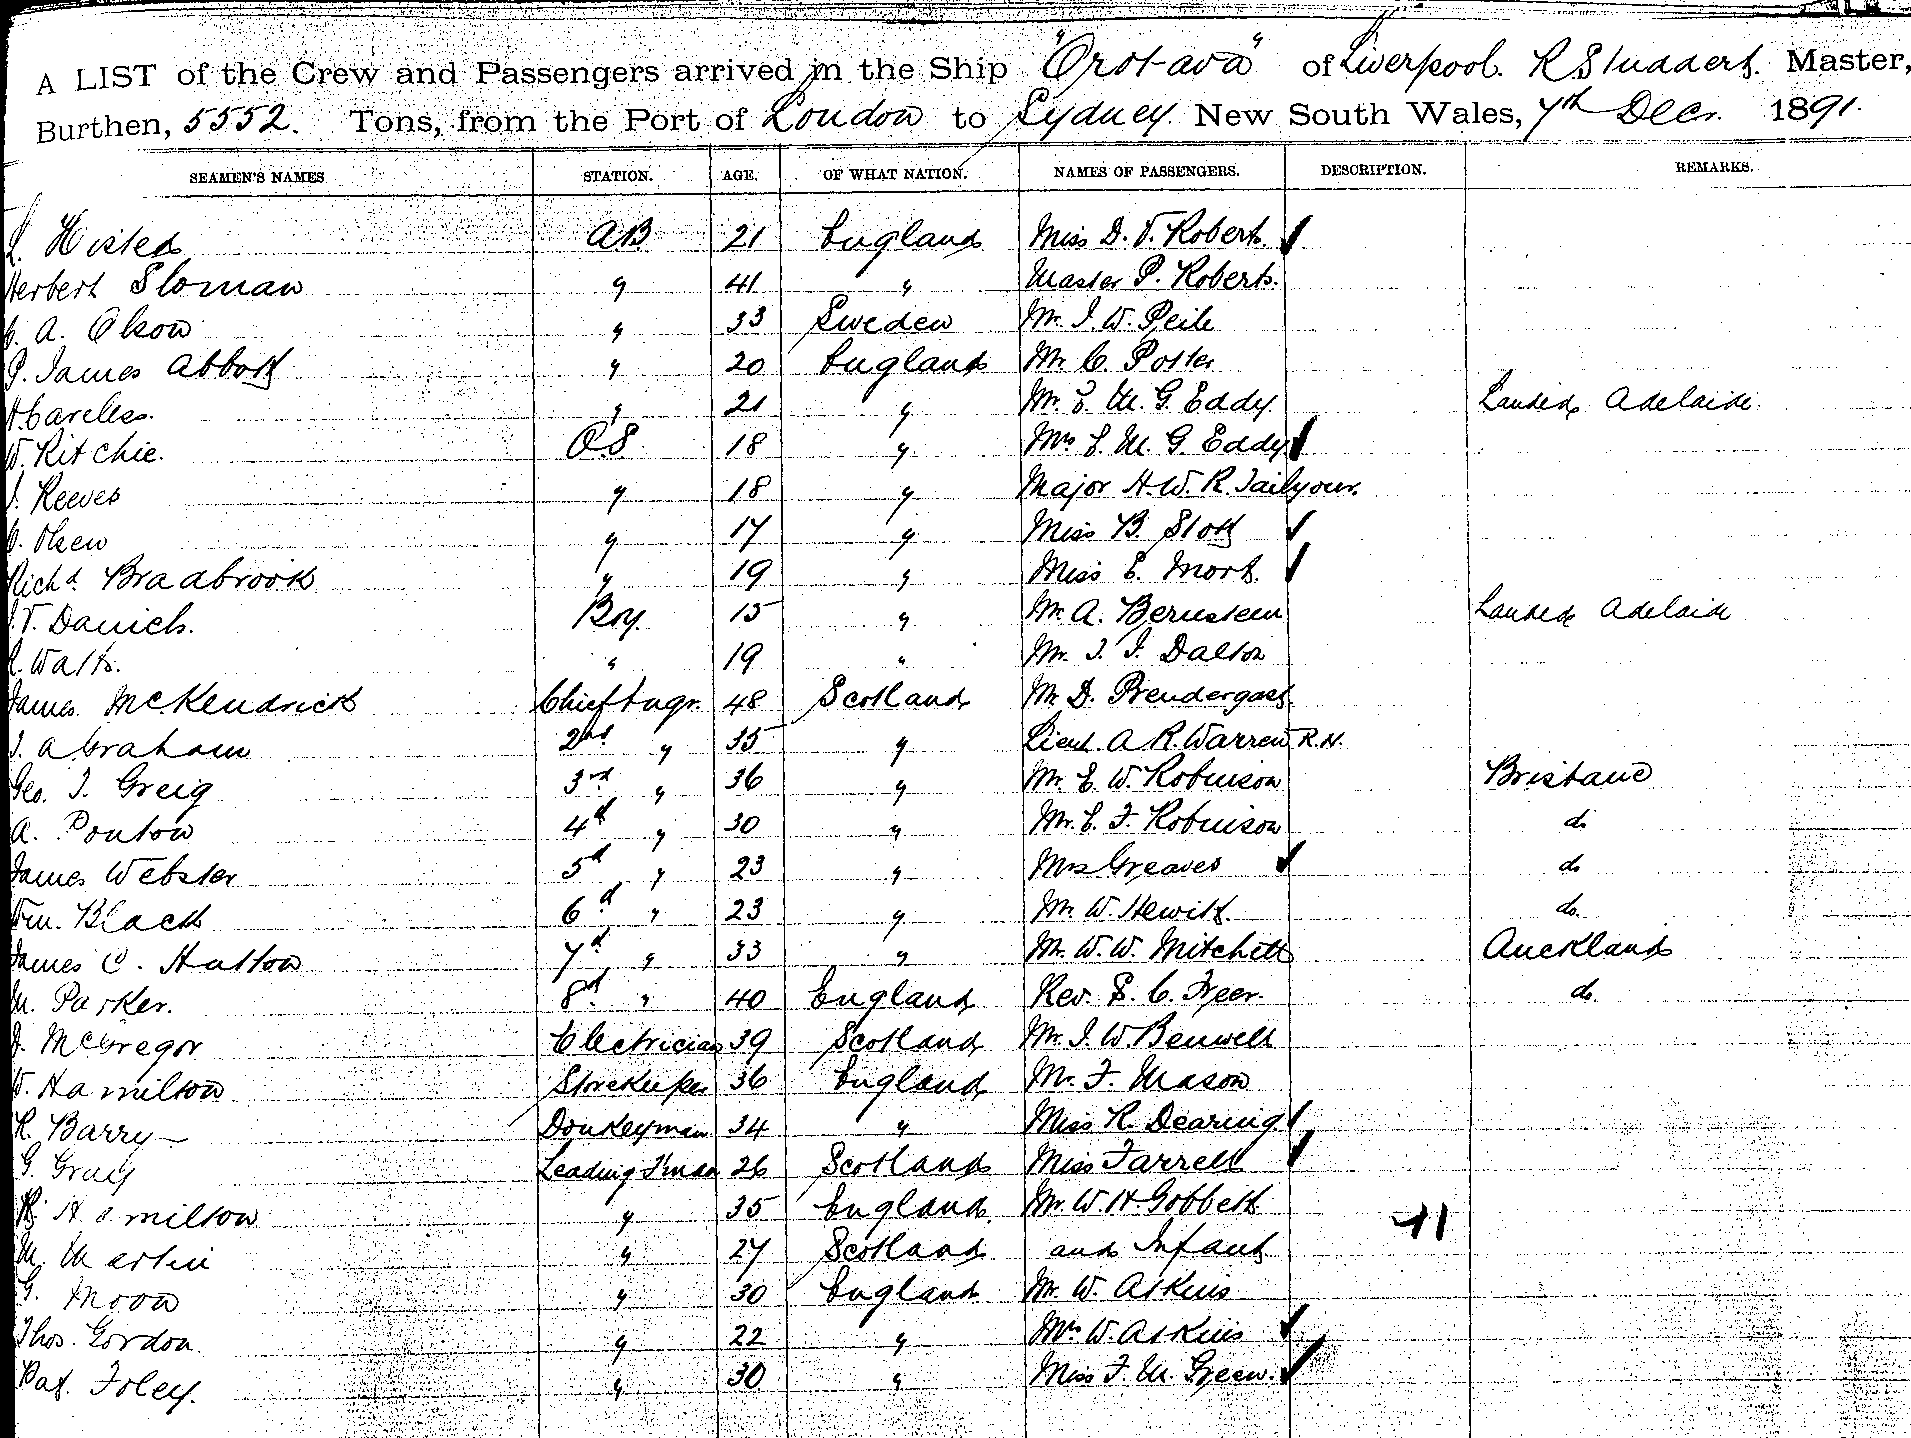 A LIST of the Crew and Passengers arrived in the Ship "Orotava" of Liverpool. R Studdert. Master,
Burthen, 5552. Tons, from the Port of London to Sydney New South Wales, 7th Decr. 1891.
SEAMEN'S NAMES STATION. AGE. OF WHAT NATION. NAMES OF PASSENGERS. DESCRIPTION. REMARKS.
Histed AB 21 England Miss D. V. Roberts.
Herbert Sloman " 41 " Master P. Roberts.
A. Olson " 33 Sweden Mr. J. W. Peile
P. James Abbott " 20 England Mr. C. Potter
H Careless. " 21 " Mr. E. M. G. Eddy Landed Adelaide
W. Ritchie. OS 18 " Mrs E. M. G. Eddy
J. Reeves " 18 " Major H. W. R. Tailyour.
Olsen " 17 " Miss B. Stott
Richd Bradbrook " 19 " Miss E. Mort.
T. Daniels. Boy. 15 " Mr. A. Bernstein Landed Adelaide
Watts. " 19 " Mr. J. J. Dalton
James McKendrick Chief Engr. 48 Scotland Mr D. Prendergast.
J. A Graham 2nd " 35 " Lieut. A R. Warren R.N.
Geo. J. Greig 3rd " 36 " Mr. E. W. Robinson Brisbane
A. Ponton 4th " 30 " Mr. E. F. Robinson do
James Webster 5th " 23 " Mrs Greaves do
Wm. Black 6th " 23 " Mr. W. Hewitt. do.
James C. Hutton 7th " 33 " Mr. W. W. Mitchell Auckland
M. Parker. 8th " 40 England Rev. S. C. Freer. do.
J. McGregor Electrician 39 Scotland Mr. J. W. Benwell
W. Hamilton Storekeeper 36 England Mr. F. Mason
R. Barry Donkeyman 34 " Miss R. Dearing
G. Gray Leading Fman 26 Scotland Miss Farrell
R. Hamilton " 35 England. Mr. W. H. Gobbett 41
M. Martin " 27 Scotland and Infant
G. Moon " 30 England Mr. W. Atkins
Thos. Gordon. " 22 " Mrs W. Atkins
Pat. Foley. " 30 " Miss F. M. Green.